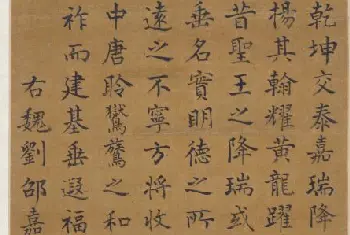 乾坤交泰嘉瑞降
揚其翰耀黃龍躍
昔聖王之降瑞或
垂名實明德之所
遠之不寧方將收
中唐聆鸑鷟之和
祚而建基垂遐福
右魏劉邵嘉